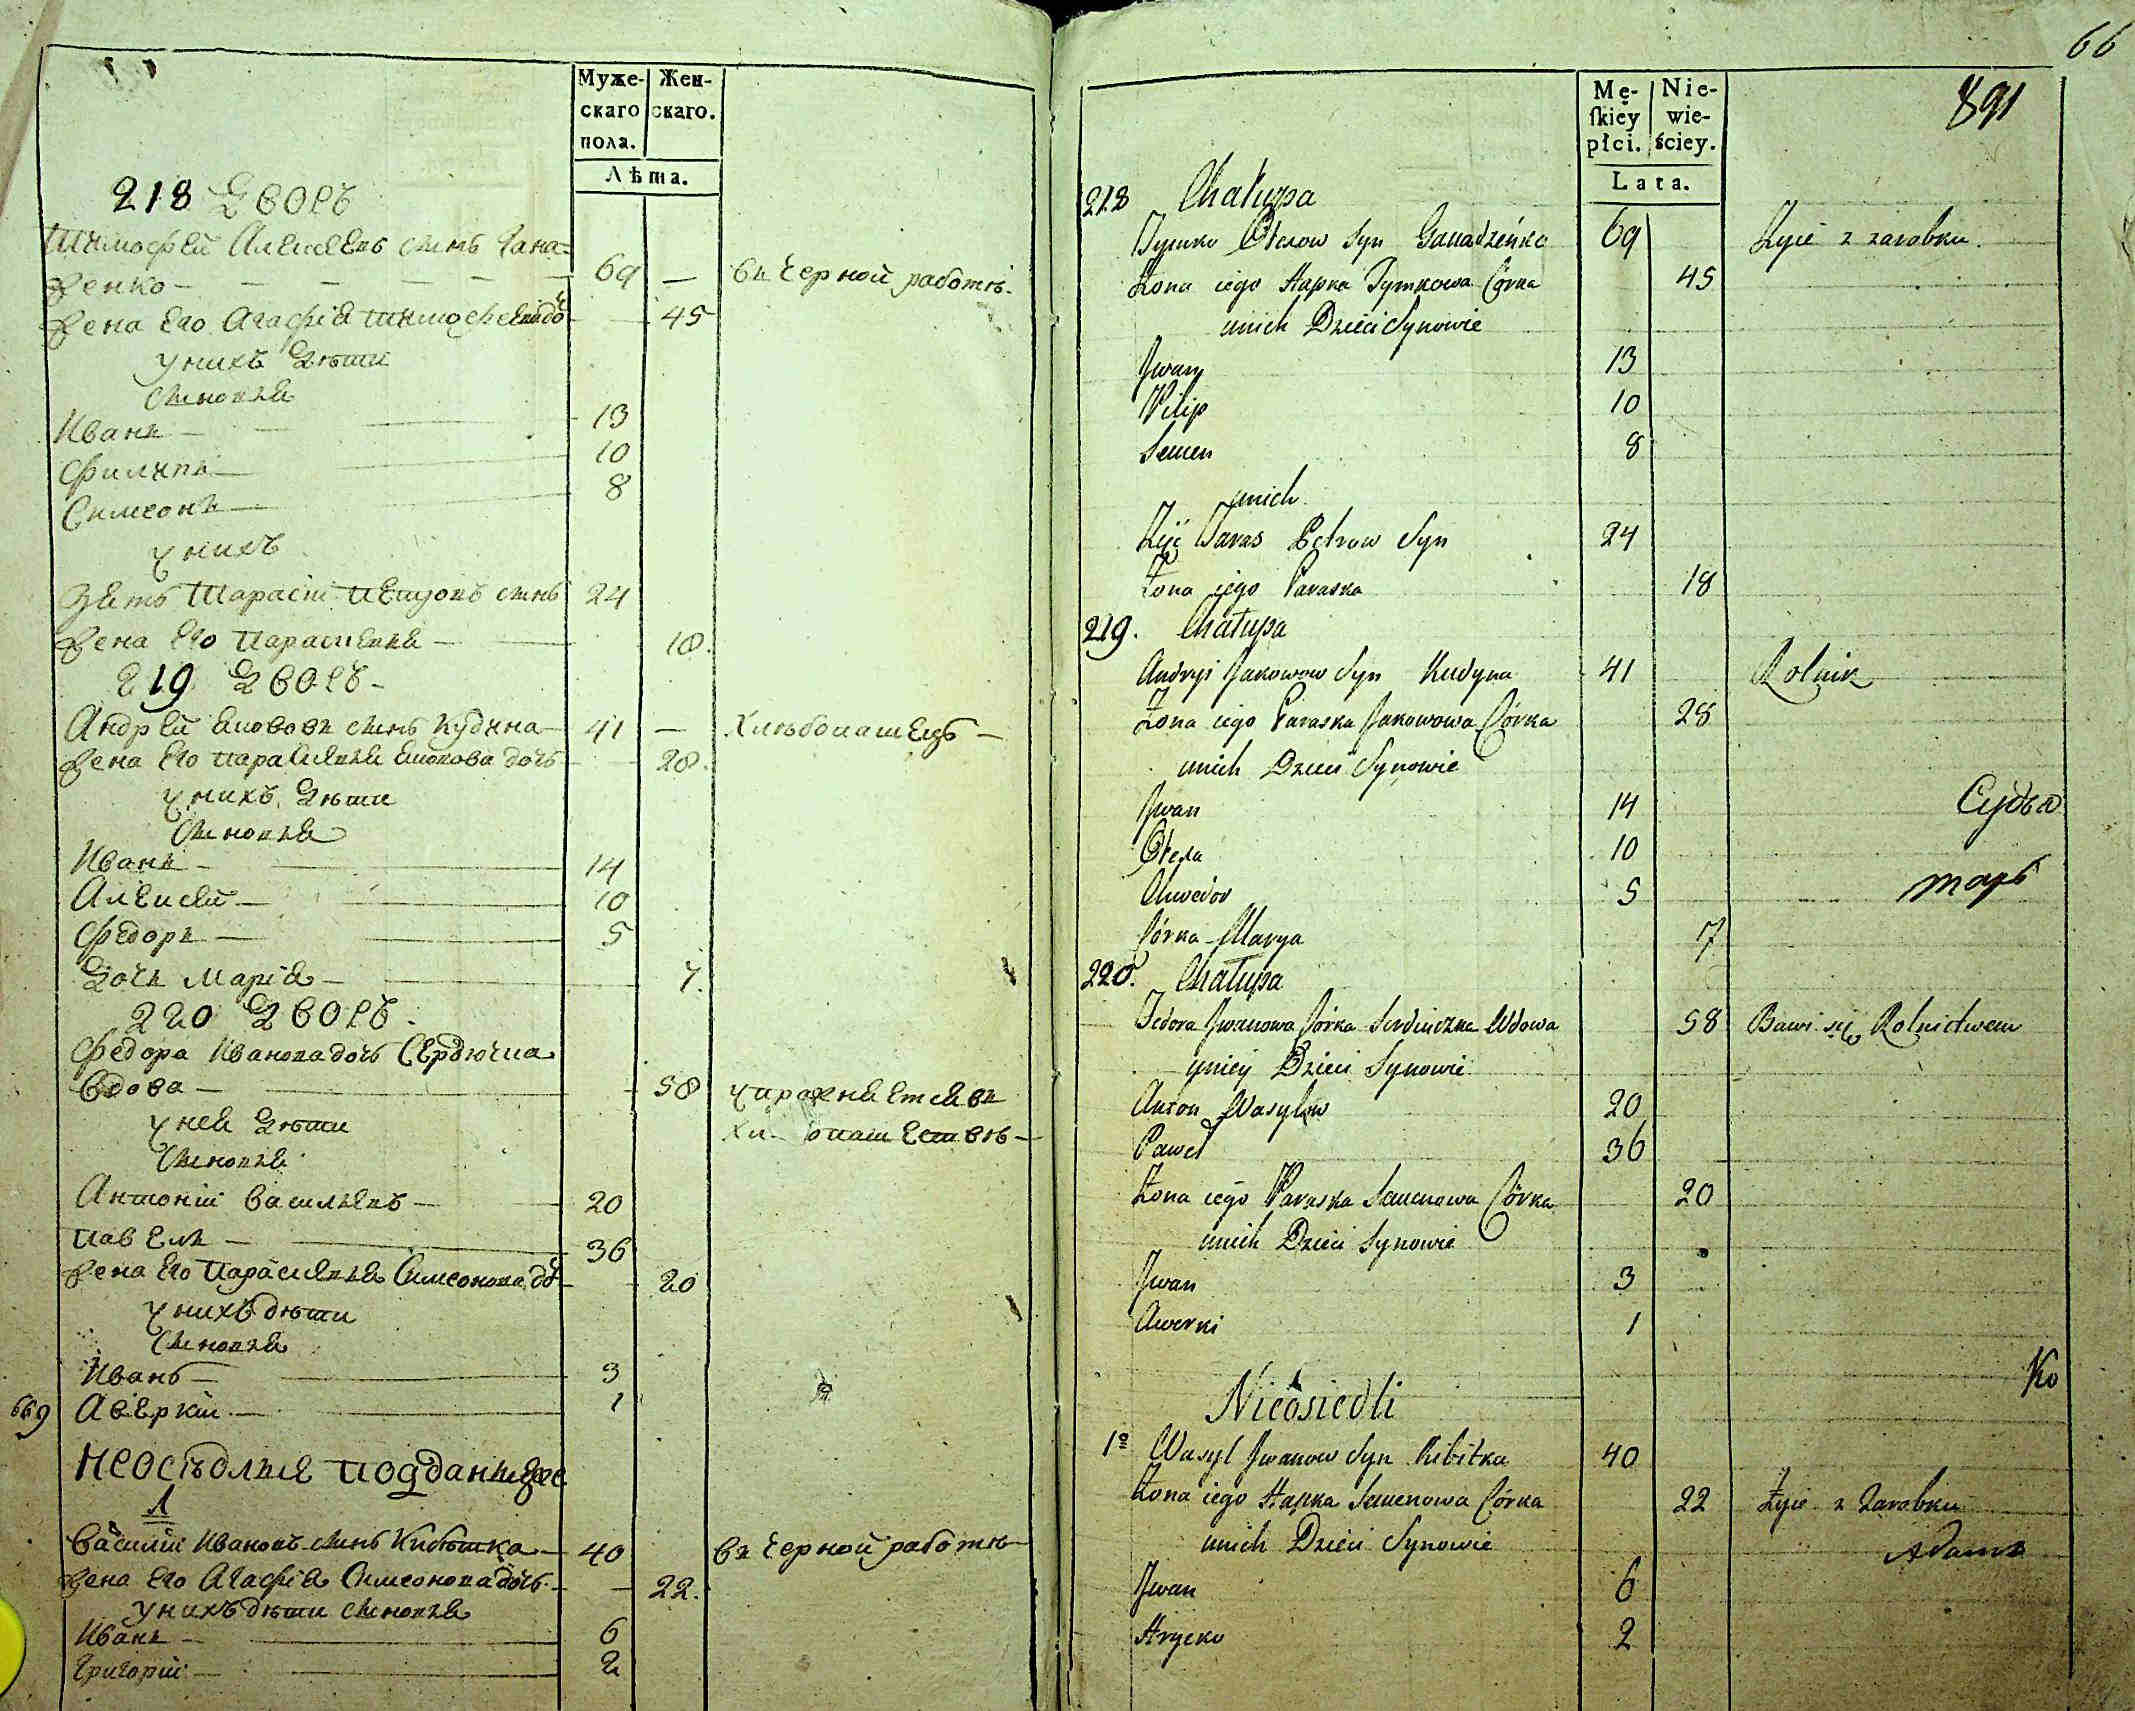 Муже-
скаго
пола.
Жен-
скаго.
Лѣта.
218 Дворъ
Тимофей Алексѣевъ сынъ Гана-
зенко 69 — въ черной работѣ.
Жена его Агафія Тимофеева доч 45
у нихъ дѣти
сыновья
Иванъ 13
Филипъ 10
Симеонъ 8
у нихъ
зять Тарасій Петровъ сынъ 24
Жена его Параскевья 18.
219 Дворъ
Андрей Якововъ сынъ Кудина 41 — Хлѣбопашецъ —
Жена его Параскевья Яковова дочь 28.
у нихъ дѣти
Сыновья
Иванъ 14
Алексѣй 10
Федоръ 5
Дочь Марія 7.
220 Дворъ.
Федора Иванова дочь Сердючка
Вдова 58 упражняется въ
у ней дѣти
Сыновья
Антоній Васильевъ 20
Павелъ 36
Жена его Параскевья Симеонова до 20
у нихъ дѣти
Сыновья
Иванъ 3
669 Аверкій 1
Неосѣдлые подданные
1
Василій Ивановъ сынъ Кибѣтка 40 въ черной работѣ
Жена его Агафія Симеонова дочь 22.
у нихъ дѣти сыновья
Иванъ 6
Григорій 2
66
891
Mę-
ſkiey
płci.
Nie-
wie-
ściey.
Lata.
218 Chałupa
Tymko Ołexow Syn 69 Żyie z zarobku.
Żona iego Hapka Tymkowa Córka 45
unich Dzieci Synowie
Jwan 13
Pilip 10
Semen 8
unich
Zięć Taras Petrow Syn 24
Żona iego Paraska 18
219. Chałupa
Andryi Jakowow Syn Kudyna 41 Rolnik
Żona iego Paraska Jakowowa Córka 28
unich Dzieci Synowie
Jwan 14 Судья
Ołexa 10
Chwedor 5
Córka Marya 7
220. Chałupa
Fedora Jwanowa Córka Serdiuczka Wdowa 58 Bawi się Rolnictwem
uniey Dzieci Synowie
Anton Wasylow 20
Paweł 36
Żona iego Paraska Semenowa Córka 20
unich Dzieci Synowie
Jwan 3
Awerki 1
Ko
Nieosiedli
1º Wasyl Jwanow Syn Kibitka 40
Żona iego Hapka Semenowa Córka 22 Żyie z Zarobku
unich Dzieci Synowie
Jwan 6
Hrycko 2